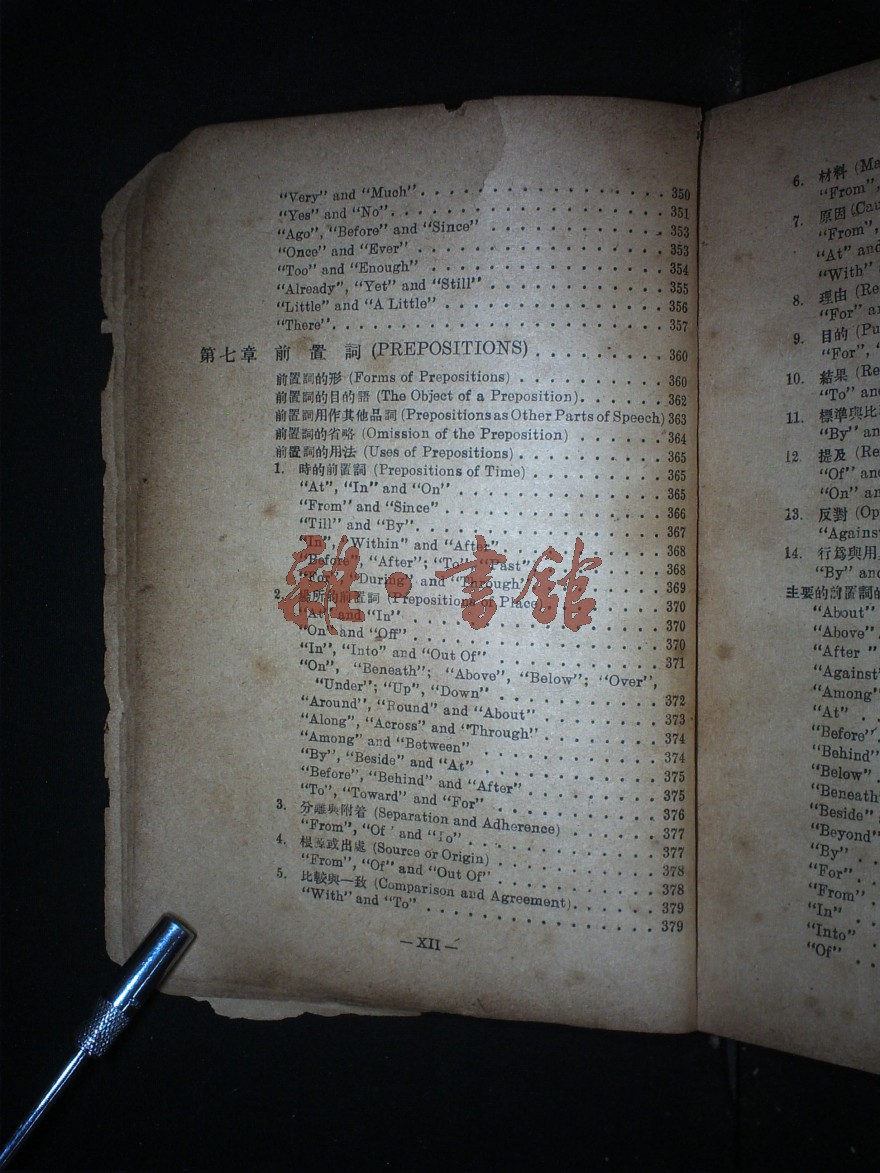 "Very" and "Much" . . . . . . . . . . . . . . . . . 350
"Yes" and "No" . . . . . . . . . . . . . . . . . . . 351
"Ago", "Before" and "Since" . . . . . . . . . . . . . 353
"Once" and "Ever" . . . . . . . . . . . . . . . . . 353
"Too" and "Enough" . . . . . . . . . . . . . . . . 354
"Already", "Yet" and "Still" . . . . . . . . . . . . . 355
"Little" and "A Little" . . . . . . . . . . . . . . . 356
"There" . . . . . . . . . . . . . . . . . . . . . . . 357
第七章 前置詞 (PREPOSITIONS) . . . . . . . . . 360
前置詞的形 (Forms of Prepositions) . . . . . . . . . . 360
前置詞的目的語 (The Object of a Preposition) . . . . . . 362
前置詞用作其他品詞 (Prepositions as Other Parts of Speech) 363
前置詞的省略 (Omission of the Preposition) . . . . . . 364
前置詞的用法 (Uses of Prepositions) . . . . . . . . . . 365
1. 時的前置詞 (Prepositions of Time) . . . . . . . . . 365
"At", "In" and "On" . . . . . . . . . . . . . . 365
"From" and "Since" . . . . . . . . . . . . . . . 366
"Till" and "By" . . . . . . . . . . . . . . . . . 367
"In", "Within" and "After" . . . . . . . . . . . 368
"Before", "After"; "To", "Past" . . . . . . . . . 368
"For", "During" and "Through" . . . . . . . . . 369
2. 場所的前置詞 (Prepositions of Place) . . . . . . . . 370
"At" and "In" . . . . . . . . . . . . . . . . . 370
"On" and "Off" . . . . . . . . . . . . . . . . . 370
"In", "Into" and "Out Of" . . . . . . . . . . . . 371
"On", "Beneath"; "Above", "Below"; "Over",
"Under"; "Up", "Down" . . . . . . . . . . . . 372
"Around", "Round" and "About" . . . . . . . . . 373
"Along", "Across" and "Through" . . . . . . . . 374
"Among" and "Between" . . . . . . . . . . . . . 374
"By", "Beside" and "At" . . . . . . . . . . . . . 375
"Before", "Behind" and "After" . . . . . . . . . 375
"To", "Toward" and "For" . . . . . . . . . . . . 376
3. 分離與附着 (Separation and Adherence) . . . . . . . 377
"From", "Of" and "To" . . . . . . . . . . . . . 377
4. 根源或出處 (Source or Origin) . . . . . . . . . . . 378
"From", "Of" and "Out Of" . . . . . . . . . . . 378
5. 比較與一致 (Comparison and Agreement) . . . . . . 379
"With" and "To" . . . . . . . . . . . . . . . . 379
— XII —
雜·書館
6. 材料 (Ma
"From",
7. 原因 (Cau
"From",
"At" and
"With"
8. 理由 (Re
"For" an
9. 目的 (Pu
"For", "
10. 結果 (Re
"To" and
11. 標準與比
"By" an
12. 提及 (Re
"Of" and
"On" an
13. 反對 (Op
"Agains
14. 行爲與用
"By" and
主要的前置詞的
"About"
"Above"
"After"
"Against"
"Among"
"At" . .
"Before"
"Behind"
"Below"
"Beneath
"Beside"
"Beyond"
"By" . .
"For" .
"From"
"In" . .
"Into" .
"Of" . .